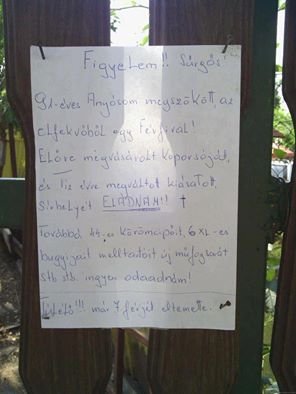 Figyelem!! Sürgős!
91-éves Anyósom megszökött az
elfekvőből egy férfival!
Előre megvásárolt koporsóját,
és tíz évre megváltott kiásatott
sírhelyét ELADNÁM!! †
Továbbá 44-es körömcipőit, 6 XL-es
bugyigait melltartóit új műfogsorát
stb stb. ingyen odaadnám!
Ui: !!! már 7 férjét eltemette.